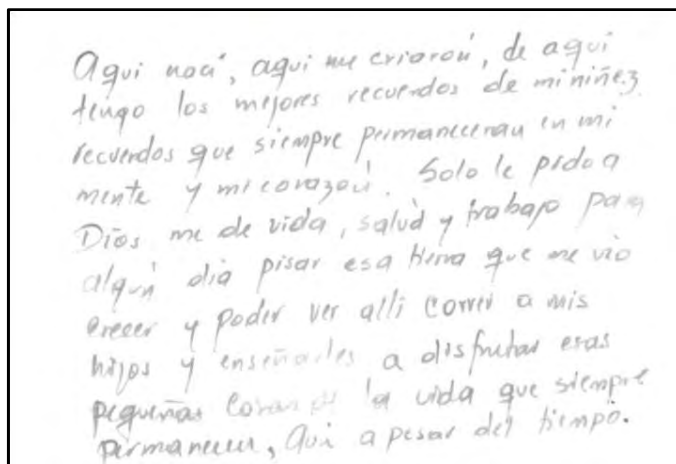 Aqui nací, aqui me criaron, de aqui
tengo los mejores recuerdos de mi niñez
recuerdos que siempre permaneceran en mi
mente y mi corazón. Solo le pido a
Dios me de vida, salud y trabajo para
algún dia pisar esa tierra que me vio
crecer y poder ver alli correr a mis
hijos y enseñarles a disfrutar esas
pequeñas cosas de la vida que siempre
permanecen, a pesar del tiempo.